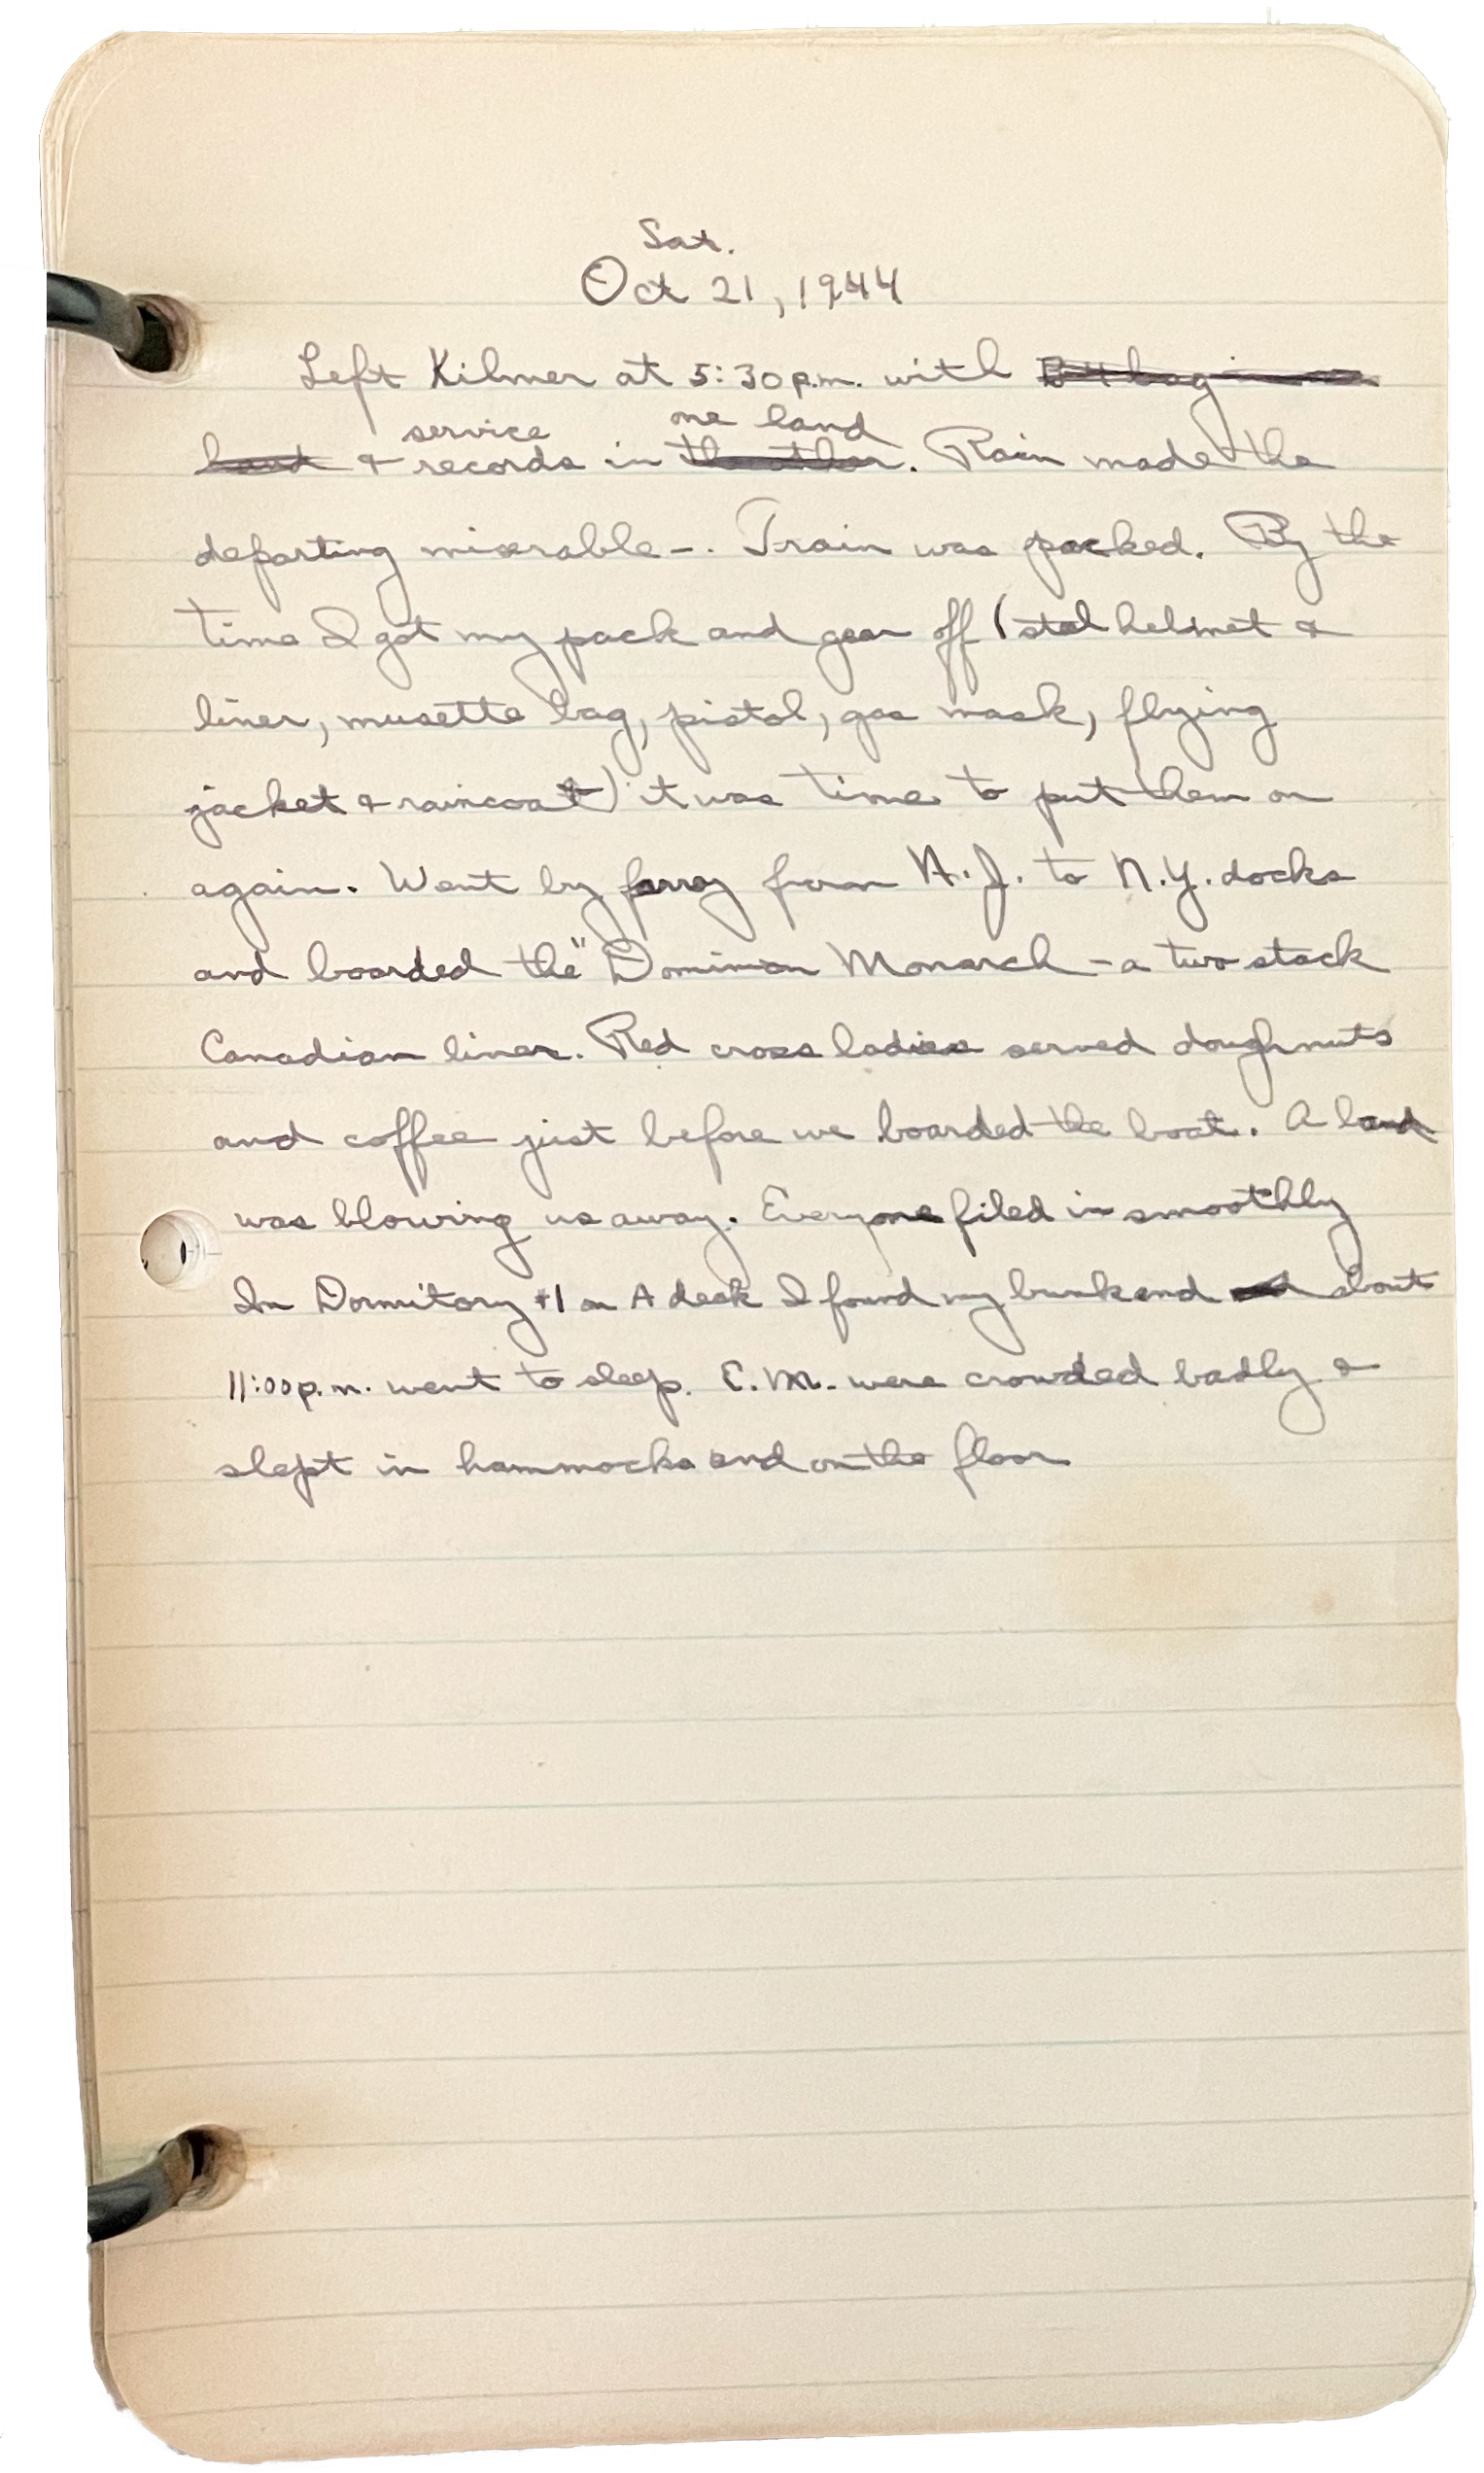 Sat.
Oct 21, 1944
Left Kilmer at 5:30 p.m. with B4 bag in
hand & service records in the other one hand. Rain made the
departing miserable-. Train was packed. By the
time I got my pack and gear off (steel helmet &
liner, musette bag, pistol, gas mask, flying
jacket & raincoat) it was time to put them on
again. Went by ferry from N.J. to N.Y. docks
and boarded the "Dominion Monarch - a two stack
Canadian liner. Red cross ladies served doughnuts
and coffee just before we boarded the boat. A band
was blowing us away. Everyone filed in smoothly
In Dormitory #1 on A deck I found my bunk and about
11:00 p.m. went to sleep. E.M. were crowded badly &
slept in hammocks and on the floor